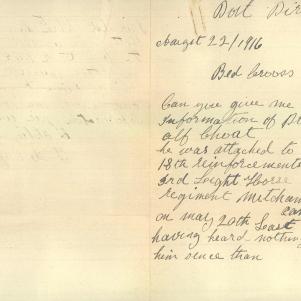 Port Pir
August 22/1916
Red Crooss
Can you give me
information of P
alf Choat
he was attached to
18th reinforcements
3rd Leight Horse
regiment Mitcham
cam
on may 20th Least
having heard nothing
him since than